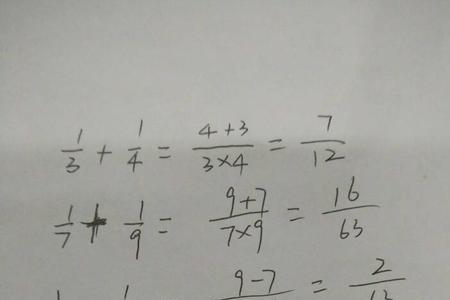 1/3 + 1/4 = (4+3)/(3×4) = 7/12
1/7 + 1/9 = (9+7)/(7×9) = 16/63
9-7 = 2